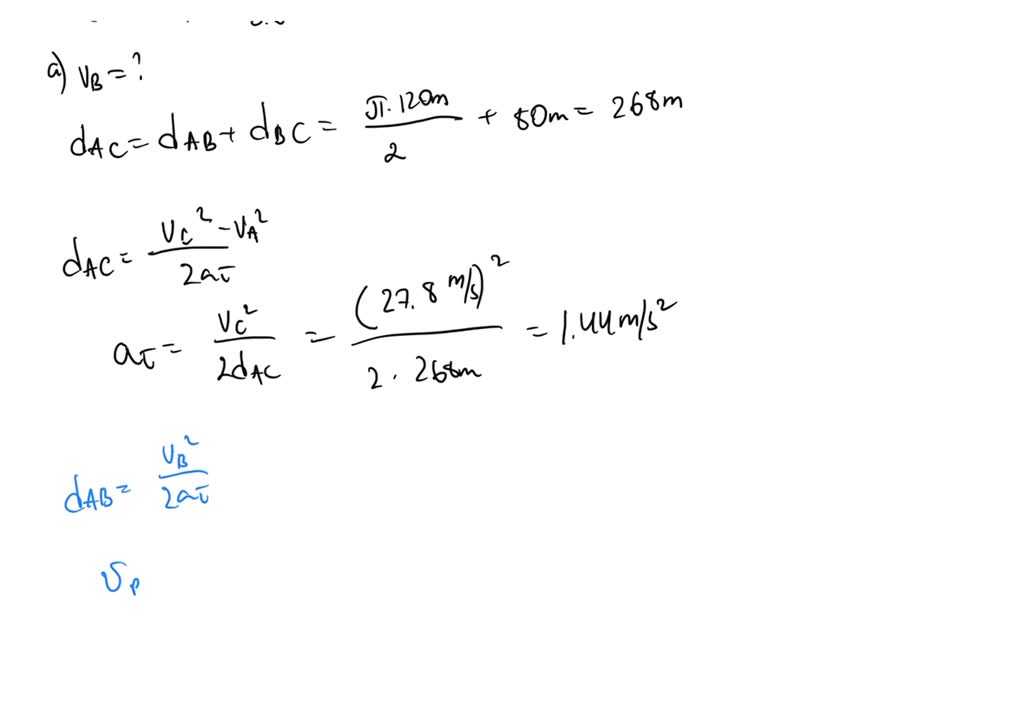 a) VB = ?
dAC = dAB + dBC = π·120m / 2 + 80m = 268m
dAC = VC² - VA² / 2aτ
aτ = VC² / 2dAC = (27.8 m/s)² / 2 · 268m = 1.44 m/s²
dAB = VB² / 2aτ